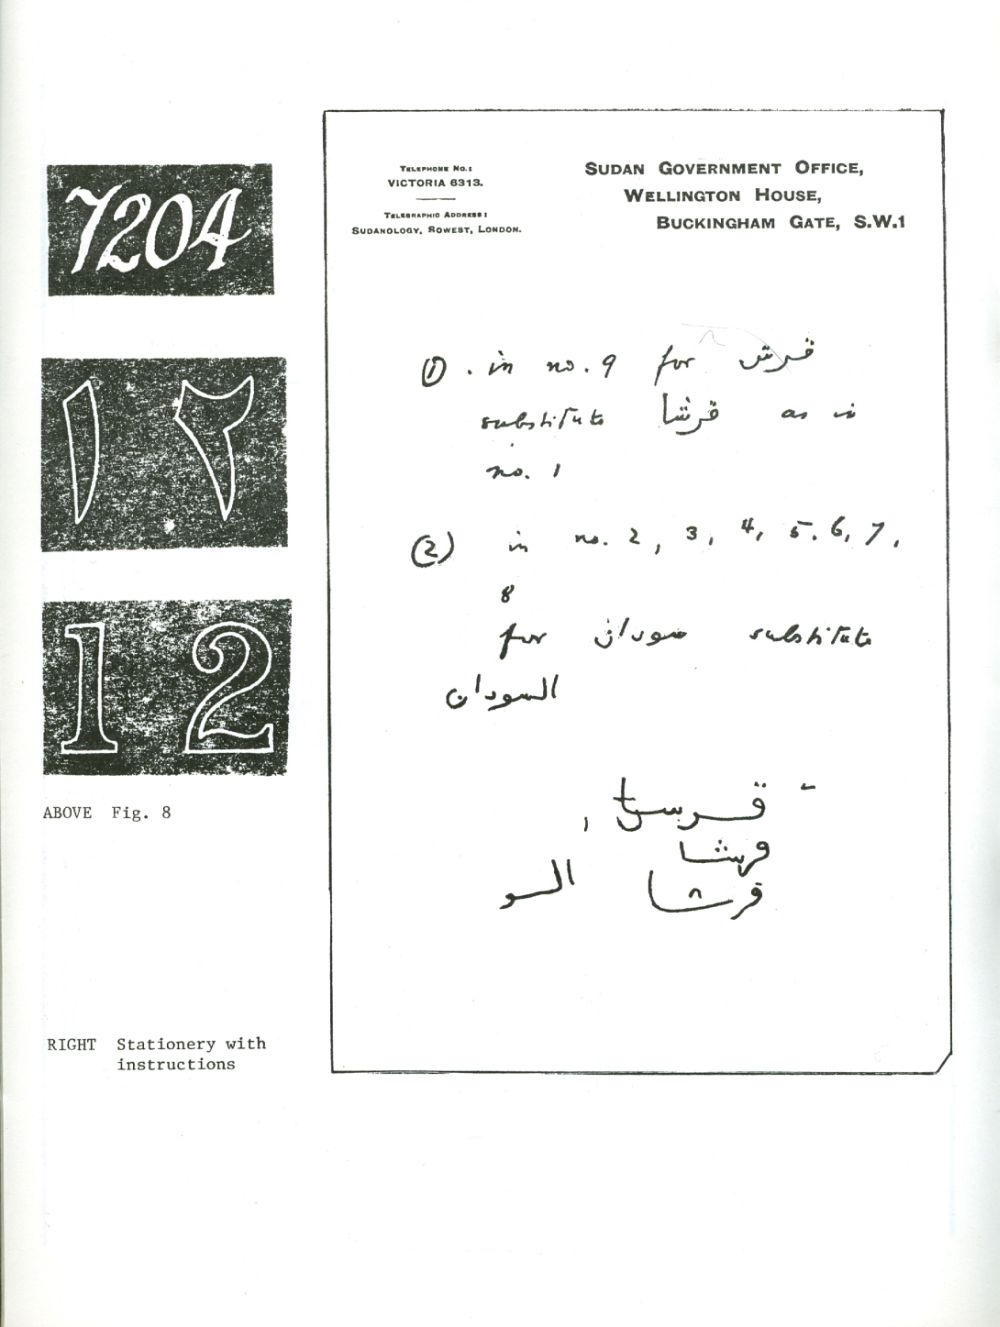 7204
١٢
12
ABOVE Fig. 8
RIGHT Stationery with
instructions
TELEPHONE NO.:
VICTORIA 6313.
TELEGRAPHIC ADDRESS:
SUDANOLOGY, SOWEST, LONDON.
SUDAN GOVERNMENT OFFICE,
WELLINGTON HOUSE,
BUCKINGHAM GATE, S.W.1
(1). in no. 9 for قرش
substitute قرشا as in
no. 1
(2) in no. 2, 3, 4, 5, 6, 7,
8
for سودان substitute
السودان
قرشا
قرشا السو